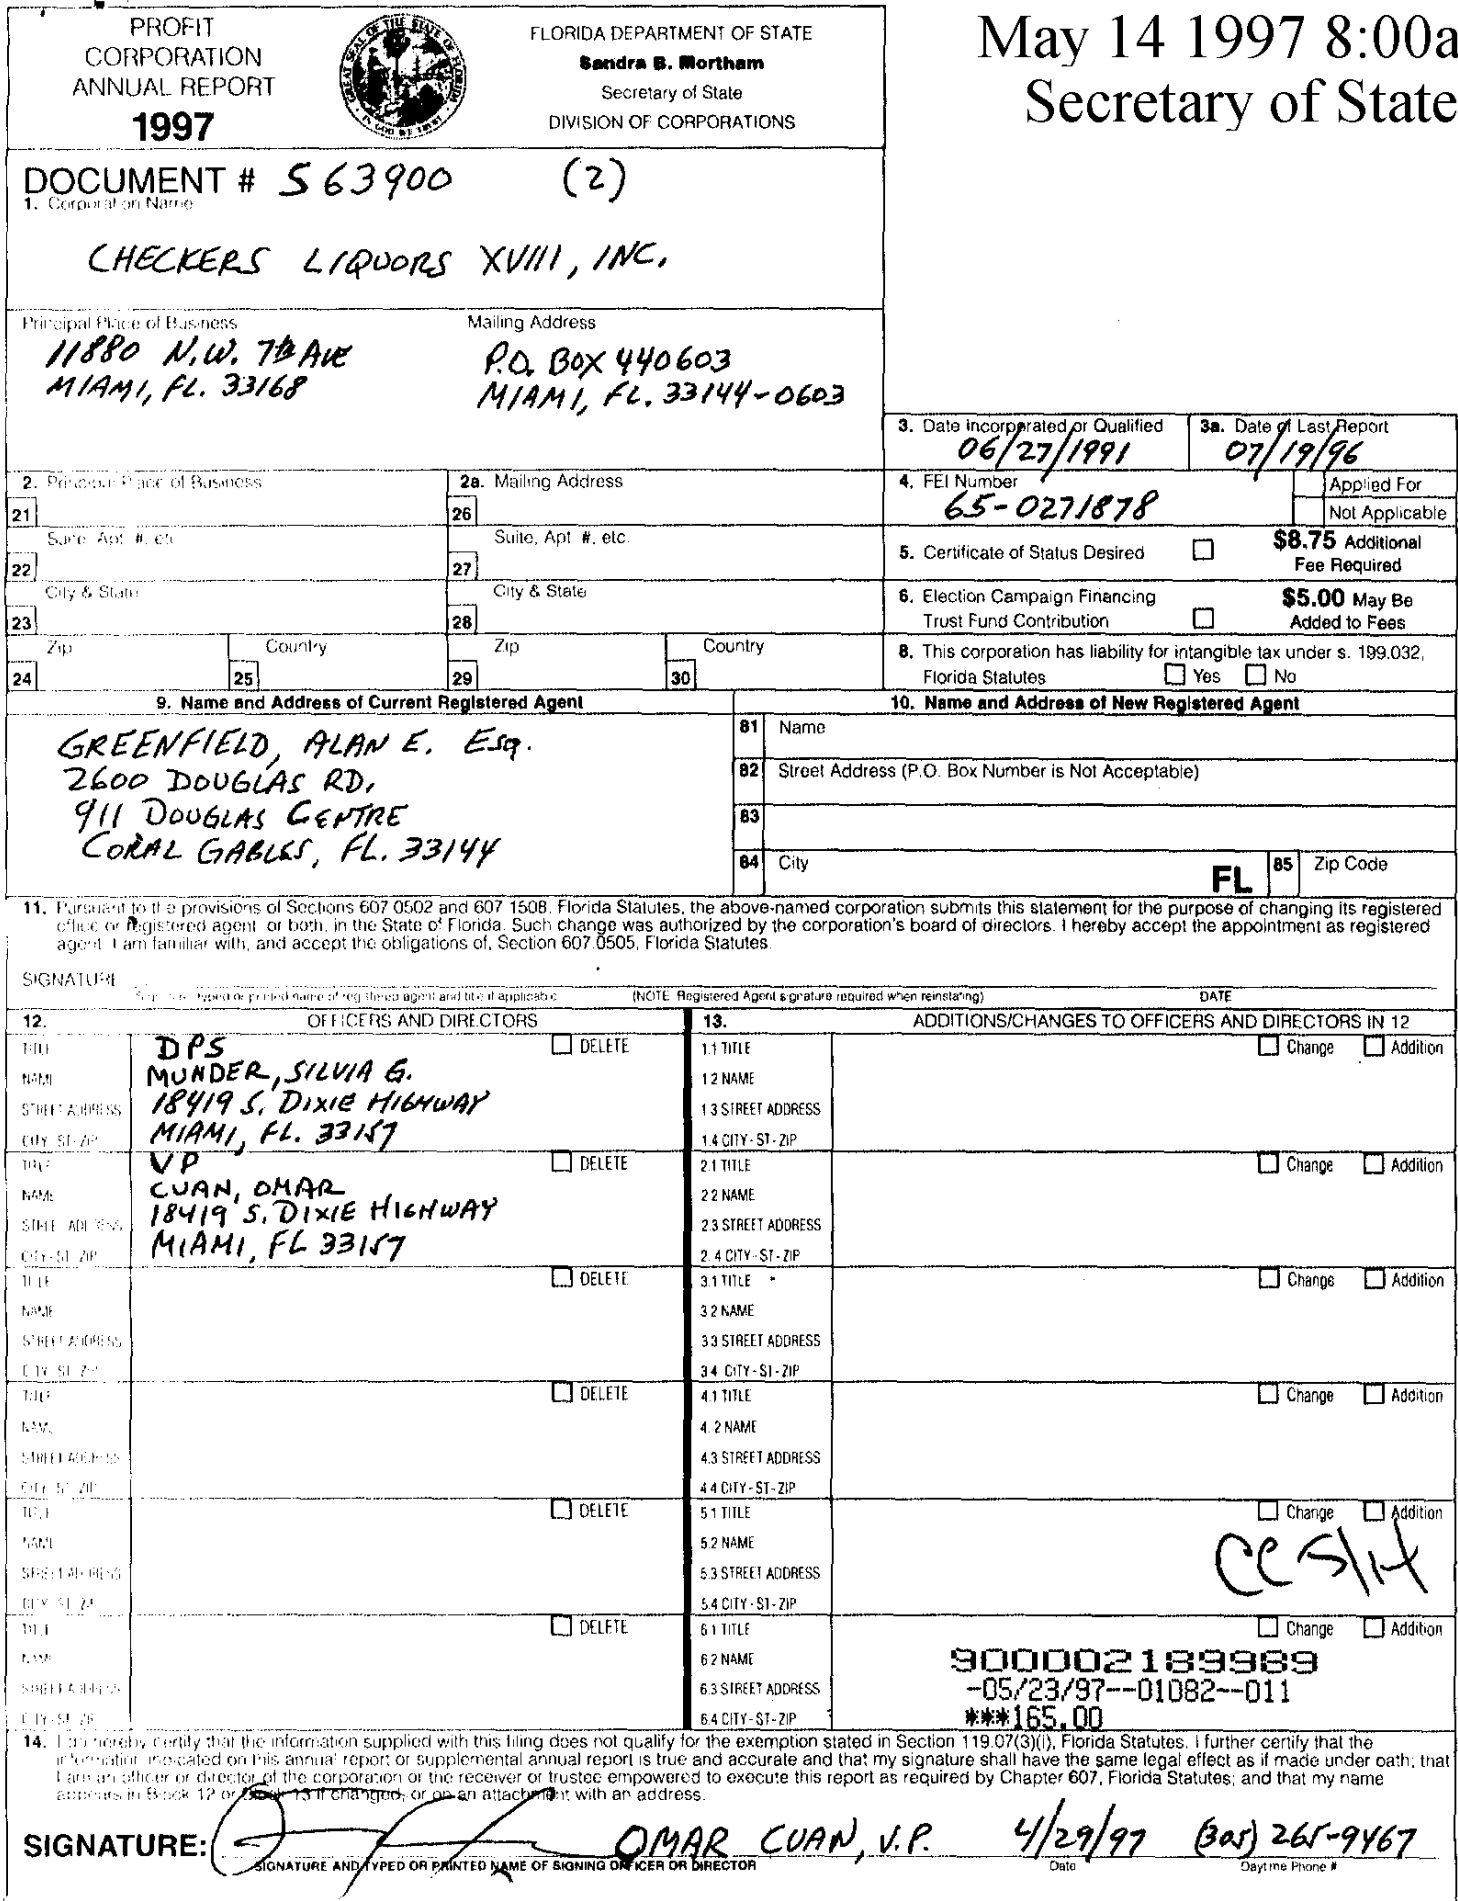 PROFIT
CORPORATION
ANNUAL REPORT
1997
GREAT SEAL OF THE STATE OF FLORIDA
IN GOD WE TRUST
FLORIDA DEPARTMENT OF STATE
Sandra B. Mortham
Secretary of State
DIVISION OF CORPORATIONS
May 14 1997 8:00a
Secretary of State
DOCUMENT # S63900 (2)
1. Corporation Name
CHECKERS LIQUORS XVIII, INC.
Principal Place of Business
11880 N.W. 7th AVE
MIAMI, FL. 33168
Mailing Address
P.O. BOX 440603
MIAMI, FL. 33144-0603
3. Date Incorporated or Qualified
06/27/1991
3a. Date of Last Report
07/19/96
2. Principal Place of Business
21
2a. Mailing Address
26
4. FEI Number
65-0271878
Applied For
Not Applicable
Suite, Apt. #, etc.
22
Suite, Apt. #, etc.
27
5. Certificate of Status Desired
$8.75 Additional
Fee Required
City & State
23
City & State
28
6. Election Campaign Financing
Trust Fund Contribution
$5.00 May Be
Added to Fees
Zip
24
Country
25
Zip
29
Country
30
8. This corporation has liability for intangible tax under s. 199.032,
Florida Statutes Yes No
9. Name and Address of Current Registered Agent
GREENFIELD, ALAN E. Esq.
2600 DOUGLAS RD,
911 DOUGLAS CENTRE
CORAL GABLES, FL. 33144
10. Name and Address of New Registered Agent
81 Name
82 Street Address (P.O. Box Number is Not Acceptable)
83
84 City FL 85 Zip Code
11. Pursuant to the provisions of Sections 607.0502 and 607.1508, Florida Statutes, the above-named corporation submits this statement for the purpose of changing its registered
office or registered agent, or both, in the State of Florida. Such change was authorized by the corporation's board of directors. I hereby accept the appointment as registered
agent. I am familiar with, and accept the obligations of, Section 607.0505, Florida Statutes.
SIGNATURE
Signature, typed or printed name of registered agent and title if applicable (NOTE: Registered Agent signature required when reinstating) DATE
12. OFFICERS AND DIRECTORS
13. ADDITIONS/CHANGES TO OFFICERS AND DIRECTORS IN 12
TITLE DPS DELETE
NAME MUNDER, SILVIA G.
STREET ADDRESS 18419 S. DIXIE HIGHWAY
CITY-ST-ZIP MIAMI, FL. 33157
1.1 TITLE Change Addition
1.2 NAME
1.3 STREET ADDRESS
1.4 CITY-ST-ZIP
TITLE VP DELETE
NAME CUAN, OMAR
STREET ADDRESS 18419 S. DIXIE HIGHWAY
CITY-ST-ZIP MIAMI, FL 33157
2.1 TITLE Change Addition
2.2 NAME
2.3 STREET ADDRESS
2.4 CITY-ST-ZIP
TITLE DELETE
NAME
STREET ADDRESS
CITY-ST-ZIP
3.1 TITLE Change Addition
3.2 NAME
3.3 STREET ADDRESS
3.4 CITY-ST-ZIP
TITLE DELETE
NAME
STREET ADDRESS
CITY-ST-ZIP
4.1 TITLE Change Addition
4.2 NAME
4.3 STREET ADDRESS
4.4 CITY-ST-ZIP
TITLE DELETE
NAME
STREET ADDRESS
CITY-ST-ZIP
5.1 TITLE Change Addition
5.2 NAME
5.3 STREET ADDRESS
5.4 CITY-ST-ZIP
CC 5/14
TITLE DELETE
NAME
STREET ADDRESS
CITY-ST-ZIP
6.1 TITLE Change Addition
6.2 NAME
6.3 STREET ADDRESS
6.4 CITY-ST-ZIP
900002189989
-05/23/97--01082--011
***165.00
14. I do hereby certify that the information supplied with this filing does not qualify for the exemption stated in Section 119.07(3)(i), Florida Statutes. I further certify that the
information indicated on this annual report or supplemental annual report is true and accurate and that my signature shall have the same legal effect as if made under oath; that
I am an officer or director of the corporation or the receiver or trustee empowered to execute this report as required by Chapter 607, Florida Statutes; and that my name
appears in Block 12 or Block 13 if changed, or on an attachment with an address.
SIGNATURE: OMAR CUAN, V.P. 4/29/97 (305) 265-9467
SIGNATURE AND TYPED OR PRINTED NAME OF SIGNING OFFICER OR DIRECTOR Date Daytime Phone #